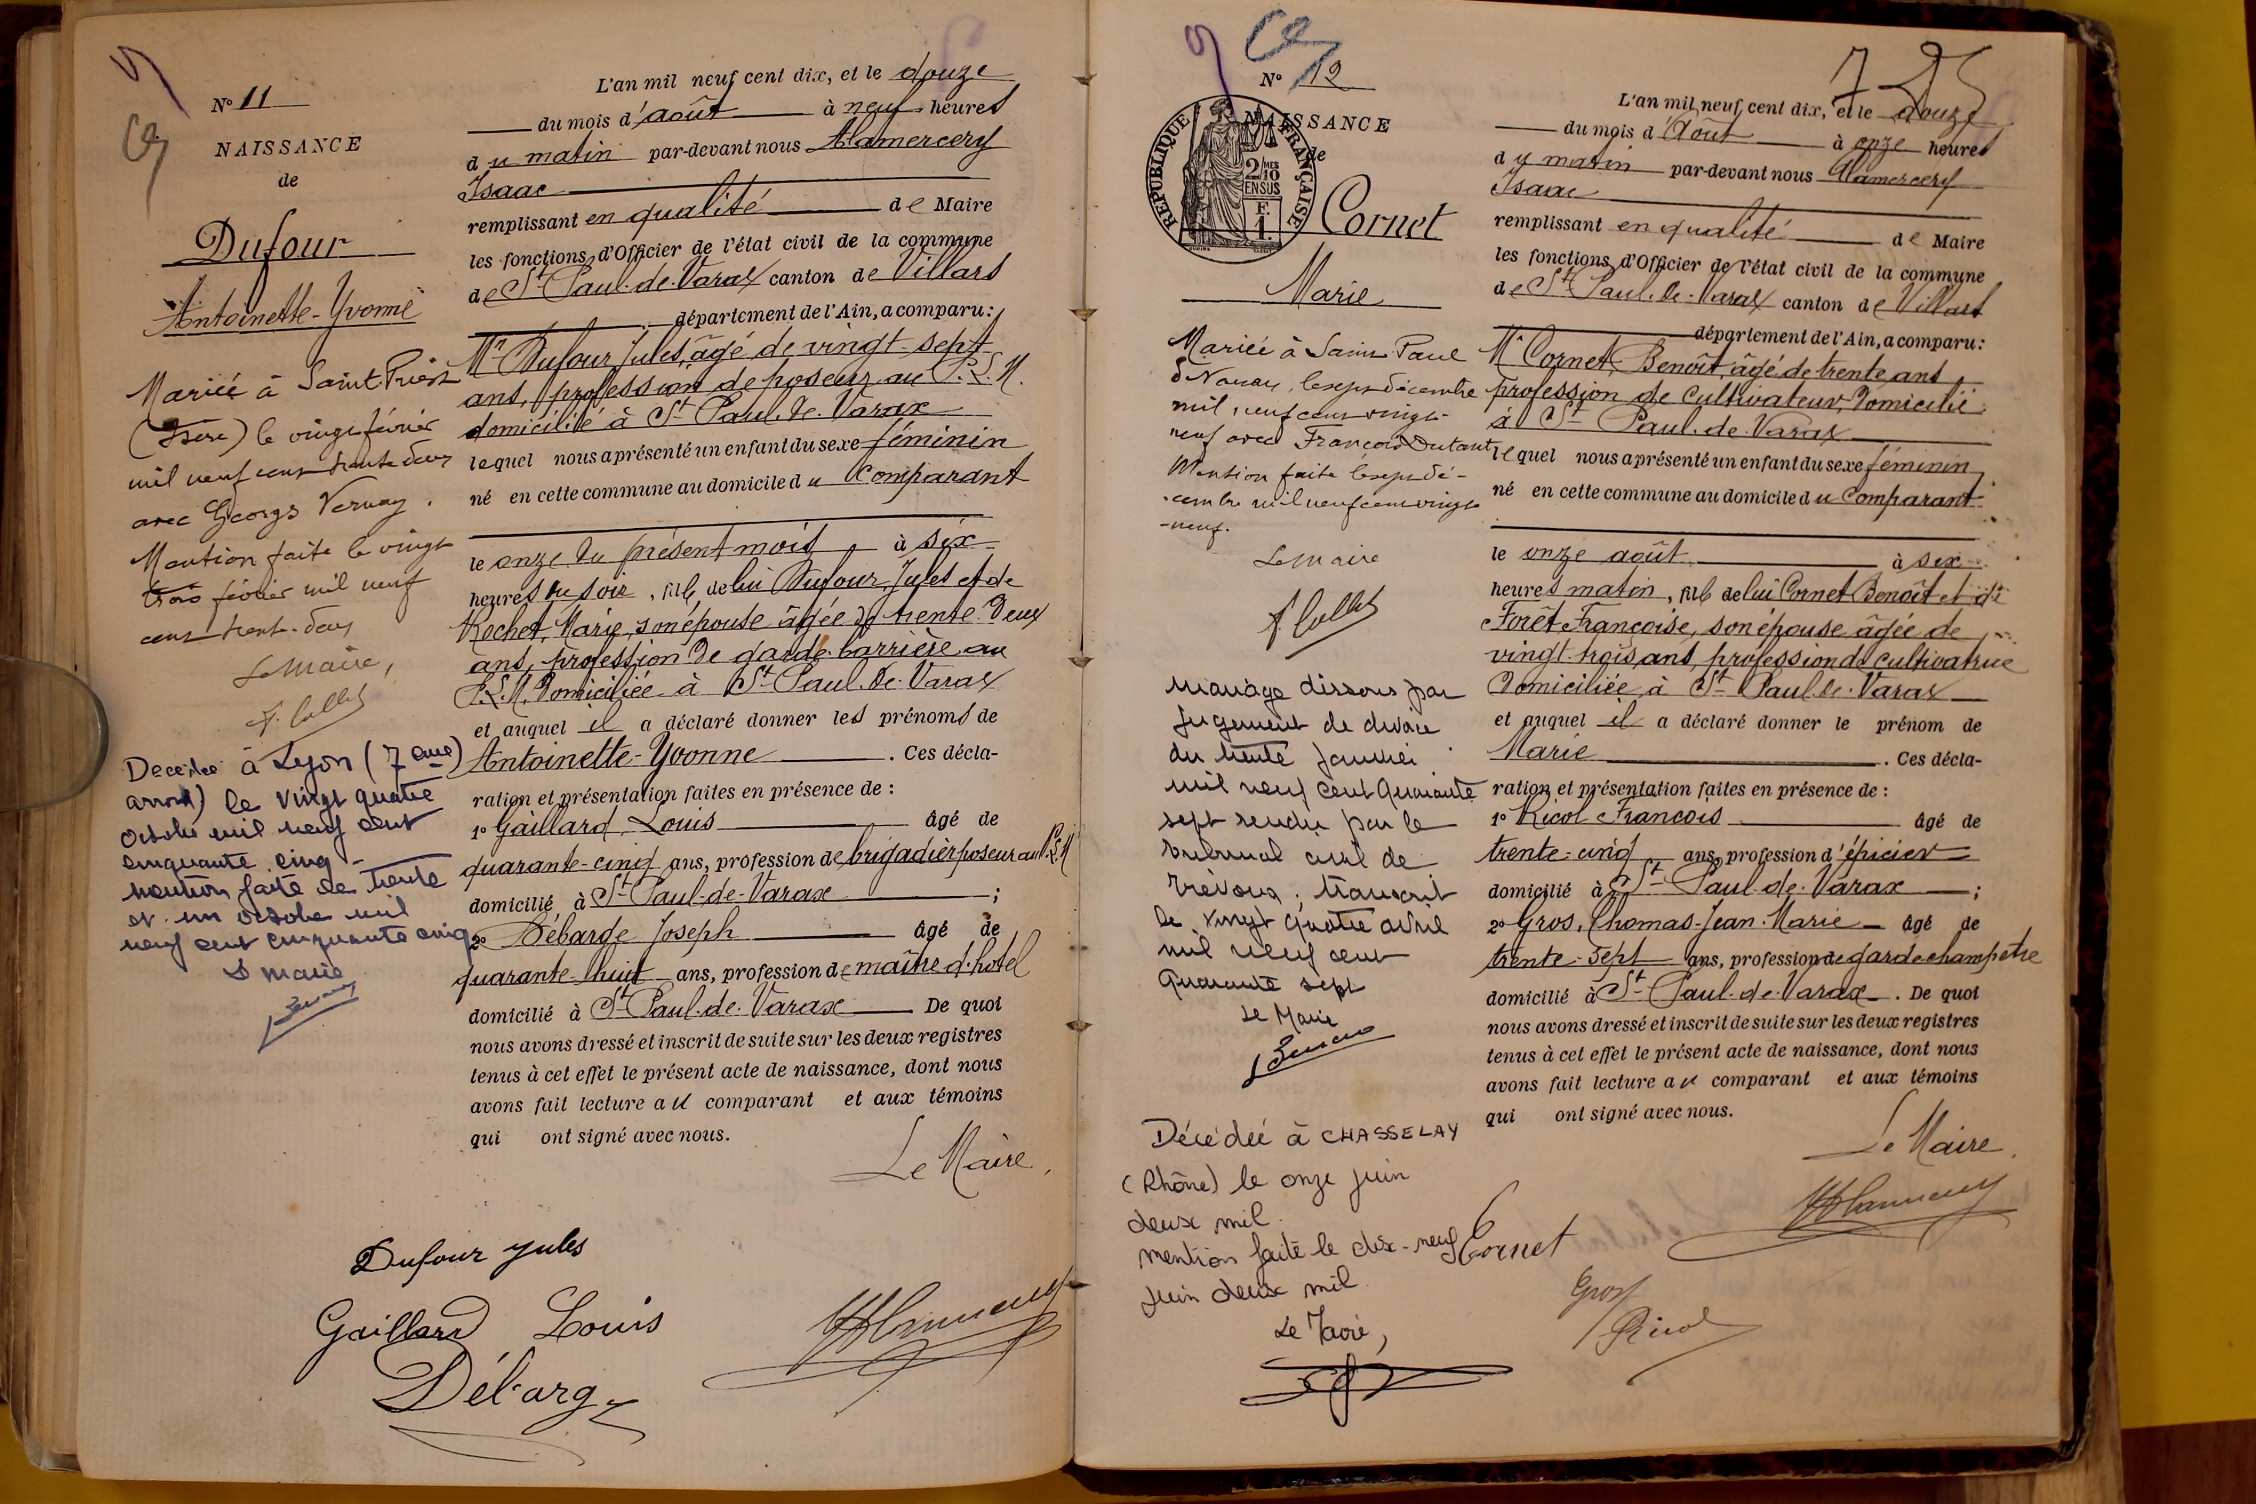 N° 11
NAISSANCE
de
Dufour
Antoinette-Yvonne
Mariée à Saint Priest
(Isère) le vingt février
mil neuf cent trente deux
avec Georges Vernay.
Mention faite le vingt
trois février mil neuf
cent trente-deux
Le Maire,
Décédée à Lyon (7 ème
arrond) le vingt quatre
octobre mil neuf cent
cinquante cinq -
Mention faite le trente
et un octobre mil
neuf cent cinquante cinq
Le Maire
L'an mil neuf cent dix, et le douze
du mois d'août à neuf heures
du matin par-devant nous Alamercery
Isaac
remplissant en qualité de Maire
les fonctions d'Officier de l'état civil de la commune
de St Paul-de-Varax canton de Villars
département de l'Ain, a comparu:
Mr Dufour Jules, âgé de vingt-sept
ans, profession de poseur au P.L.M.
domicilié à St Paul-de-Varax
lequel nous a présenté un enfant du sexe féminin
né en cette commune au domicile du Comparant
le onze du présent mois à six
heures du soir, fille de lui Dufour Jules et de
Rochet, Marie, son épouse âgée de trente-deux
ans, profession de garde-barrière au
P.L.M. Domiciliée à St Paul-de-Varax
et auquel il a déclaré donner les prénoms de
Antoinette-Yvonne. Ces décla-
ration et présentation faites en présence de :
1° Gaillard, Louis âgé de
quarante-cinq ans, profession de brigadier poseur au P.L.M
domicilié à St Paul-de-Varax ;
2° Débarge Joseph âgé de
quarante-huit ans, profession de maître d'hotel
domicilié à St Paul-de-Varax De quoi
nous avons dressé et inscrit de suite sur les deux registres
tenus à cet effet le présent acte de naissance, dont nous
avons fait lecture au comparant et aux témoins
qui ont signé avec nous.
Le Maire,
Dufour Jules
Gaillard Louis
Débarge
N° 12
NAISSANCE
de
RÉPUBLIQUE FRANÇAISE
2/10
EN SUS
F.
1.
Cornet
Marie
Mariée à Saint Paul
de Varax, le sept décembre
mil neuf cent vingt-
neuf avec François Dutant
Mention faite le sept dé-
cembre mil neuf cent vingt
-neuf.
Le Maire
Mariage dissous par
jugement de divorce
du trente janvier
mil neuf cent quarante
sept rendu par le
tribunal civil de
Trévoux, transcrit
le vingt quatre avril
mil neuf cent
quarante sept
Le Maire
Décédée à CHASSELAY
(Rhône) le onze juin
deux mil.
mention faite le dix-neuf
juin deux mil.
Le Maire,
L'an mil neuf cent dix, et le douze
du mois d'août à onze heures
du matin par-devant nous Alamercery
Isaac
remplissant en qualité de Maire
les fonctions d'Officier de l'état civil de la commune
de St Paul-de-Varax canton de Villars
département de l'Ain, a comparu:
Mr Cornet, Benoît, âgé de trente ans,
profession de Cultivateur, Domicilié
à St Paul-de-Varax
lequel nous a présenté un enfant du sexe féminin
né en cette commune au domicile du Comparant
le onze août à six
heures matin, fille de lui Cornet Benoît et de
Forêt Françoise, son épouse âgée de
vingt-trois ans, profession de cultivatrice
Domiciliée à St Paul-de-Varax
et auquel il a déclaré donner le prénom de
Marie. Ces décla-
ration et présentation faites en présence de :
1° Ricol François âgé de
trente-cinq ans, profession d'épicier
domicilié à St Paul-de-Varax ;
2° Gros, Thomas-Jean-Marie âgé de
trente-sept ans, profession de garde champetre
domicilié à St Paul-de-Varax. De quoi
nous avons dressé et inscrit de suite sur les deux registres
tenus à cet effet le présent acte de naissance, dont nous
avons fait lecture au comparant et aux témoins
qui ont signé avec nous.
Le Maire,
Cornet
Gros
Ricol